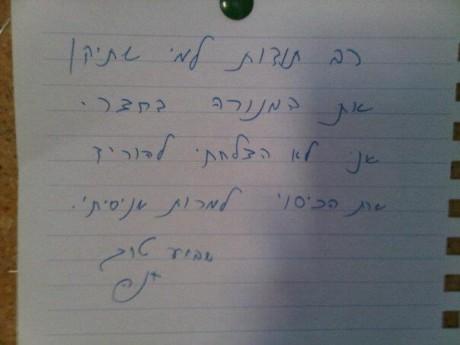 רב תודות למי שתיקן
את המנורה בחצר.
אני לא הצלחתי להוריד
את הכיסוי למרות שניסיתי.
שבוע טוב